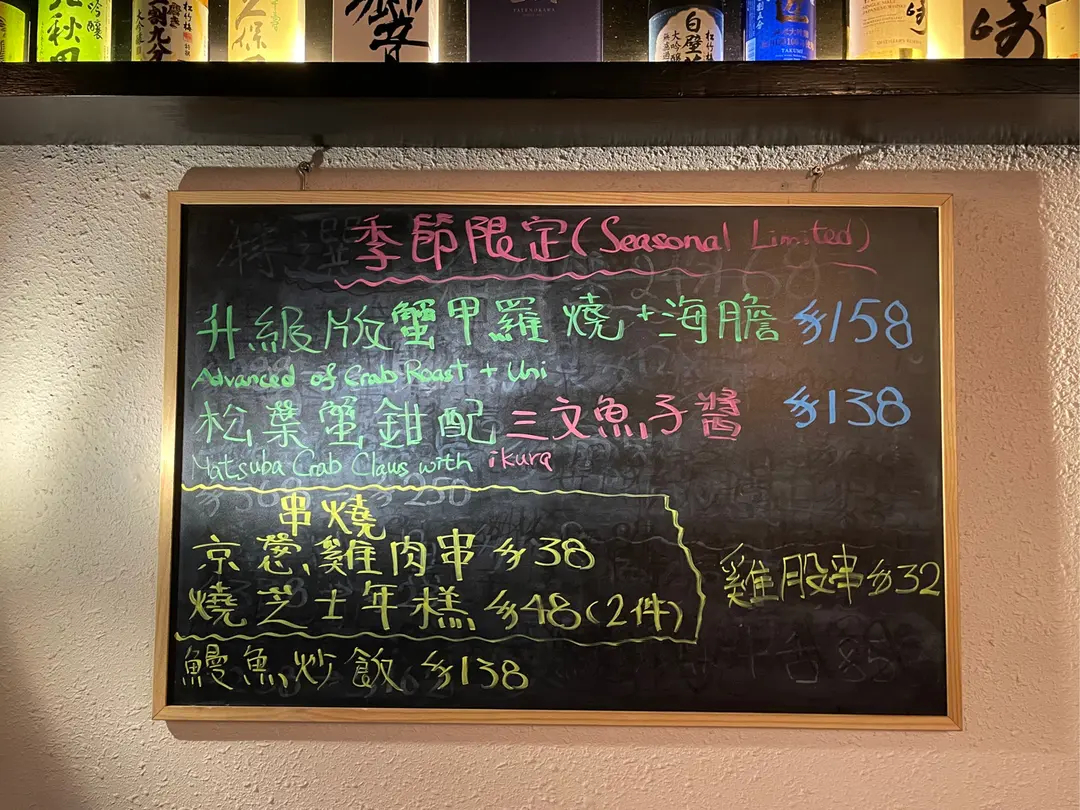 北秋田
松竹梅
白壁蔵
大吟醸
松竹梅
匠
TAKUMI
季節限定(Seasonal Limited)
升級版蟹甲羅燒+海膽 $158
Advanced of Crab Roast + Uni
松葉蟹鉗配三文魚子醬 $138
Matsuba Crab Claws with ikura
串燒
京葱雞肉串 $38
燒芝士年糕 $48(2件)
雞股串 $32
鰻魚炒飯 $138